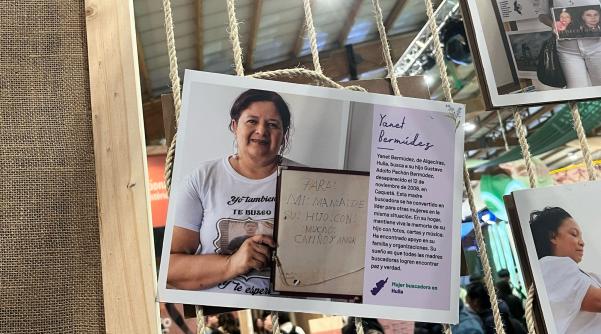 Yanet
Bermúdez
Yanet Bermúdez, de Algeciras,
Huila, busca a su hijo Gustavo
Adolfo Pachón Bermúdez,
desaparecido el 12 de
noviembre de 2008, en
Caquetá. Esta madre
buscadora se ha convertido en
líder para otras mujeres en la
misma situación. En su hogar,
mantiene viva la memoria de su
hijo con fotos, cartas y música.
Ha encontrado apoyo en su
familia y organizaciones. Su
sueño es que todas las madres
buscadoras logren encontrar
paz y verdad.
Mujer buscadora en
Huila
Yo también
TE BUSCO
Y te espero
PARA:
MI MAMA: DE
SU HIJO. CON:
MUCHO:
CARIÑO Y AMOR